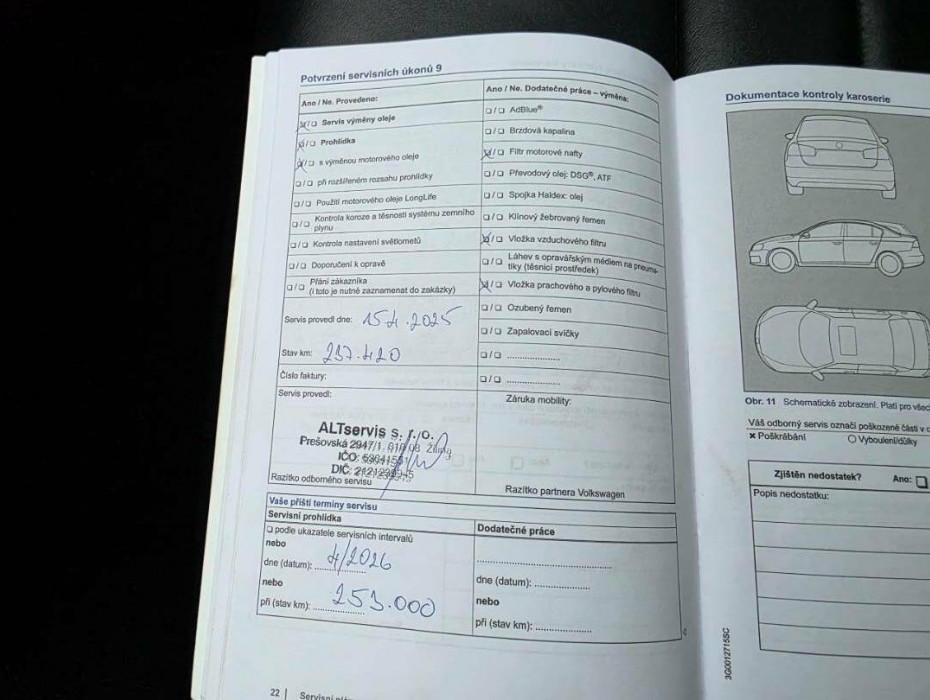 Potvrzení servisních úkonů 9
Ano / Ne. Provedeno:
☒/☐ Servis výměny oleje
☒/☐ Prohlídka
☒/☐ s výměnou motorového oleje
☐/☐ při rozšířeném rozsahu prohlídky
☐/☐ Použití motorového oleje LongLife
☐/☐ Kontrola koroze a těsnosti systému zemního
plynu
☐/☐ Kontrola nastavení světlometů
☐/☐ Doporučení k opravě
☐/☐ Přání zákazníka
(i toto je nutné zaznamenat do zakázky)
Servis provedl dne: 15.4.2025
Stav km: 237.420
Číslo faktury:
Servis provedl:
ALTservis s. r.o.
Prešovská 2947/1, 010 08 Žilina
IČO:
DIČ:
Razítko odborného servisu
Ano / Ne. Dodatečné práce – výměna:
☐/☐ AdBlue®
☐/☐ Brzdová kapalina
☒/☐ Filtr motorové nafty
☐/☐ Převodový olej: DSG®, ATF
☐/☐ Spojka Haldex: olej
☐/☐ Klínový žebrovaný řemen
☒/☐ Vložka vzduchového filtru
☐/☐ Láhev s opravářským médiem na pneuma-
tiky (těsnicí prostředek)
☒/☐ Vložka prachového a pylového filtru
☐/☐ Ozubený řemen
☐/☐ Zapalovací svíčky
☐/☐ ....................
☐/☐ ....................
Záruka mobility:
Razítko partnera Volkswagen
Vaše příští termíny servisu
Servisní prohlídka
☐ podle ukazatele servisních intervalů
nebo
dne (datum): 4/2026
nebo
při (stav km): 253.000
Dodatečné práce
..................................................
dne (datum): ....................
nebo
při (stav km): ....................
22 | Servisní
Dokumentace kontroly karoserie
Obr. 11 Schematické zobrazení. Platí pro
Váš odborný servis označí poškozené části v
× Poškrábání
○ Vyboulení/důlky
Zjištěn nedostatek?
Ano: ☐
Popis nedostatku:
3G0012715SC